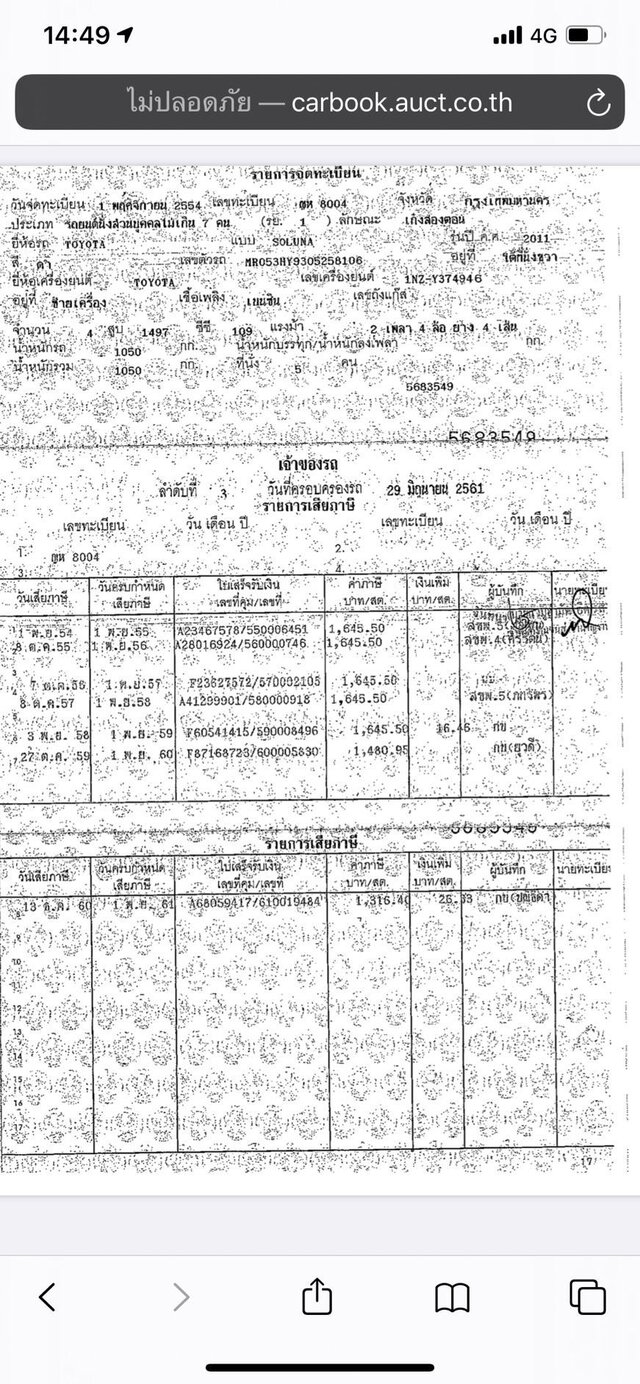 14:49
4G
ไม่ปลอดภัย — carbook.auct.co.th
รายการจดทะเบียน
วันจดทะเบียน 1 พฤศจิกายน 2554 เลขทะเบียน 8004 จังหวัด กรุงเทพมหานคร
ประเภท รถยนต์นั่งส่วนบุคคลไม่เกิน 7 คน (รย. 1 ) ลักษณะ เก๋งสองตอน
ยี่ห้อรถ TOYOTA แบบ SOLUNA รุ่นปี ค.ศ. 2011
สี ดำ เลขตัวรถ MR053HY9305258106 อยู่ที่ ใต้ที่นั่งขวา
ยี่ห้อเครื่องยนต์ TOYOTA เลขเครื่องยนต์ 1NZ-Y374946
อยู่ที่ ซ้ายเครื่อง เชื้อเพลิง เบนซิน เลขถังแก๊ส
จำนวน 4 สูบ 1497 ซีซี 109 แรงม้า 2 เพลา 4 ล้อ ยาง 4 เส้น
น้ำหนักรถ 1050 กก. น้ำหนักบรรทุก/น้ำหนักลงเพลา กก.
น้ำหนักรวม 1050 กก. ที่นั่ง 5 คน
5683549
5683549
เจ้าของรถ
ลำดับที่ 3 วันที่ครอบครองรถ 29 มิถุนายน 2561
รายการเสียภาษี
เลขทะเบียน วัน เดือน ปี เลขทะเบียน วัน เดือน ปี
1. 8004 2.
3. 4.
วันเสียภาษี วันครบกำหนด ใบเสร็จรับเงิน ค่าภาษี เงินเพิ่ม ผู้บันทึก
เสียภาษี เลขที่คุม/เลขที่ บาท/สต. บาท/สต.
1 พ.ย.54 1 พ.ย.55 A23467578/550006451 1,645.50
8 ต.ค.55 1 พ.ย.56 A28016924/560000746 1,645.50
7 ต.ค.56 1 พ.ย.57 F23627572/570092103 1,645.50
8 ต.ค.57 1 พ.ย.58 A41299901/580000918 1,645.50
3 พ.ย. 58 1 พ.ย. 59 F60541415/590008496 1,645.50 16.46 กย
27 ต.ค. 59 1 พ.ย. 60 F87168723/600005830 1,480.95 กย(ยุวดี)
รายการเสียภาษี
วันเสียภาษี วันครบกำหนด ใบเสร็จรับเงิน ค่าภาษี เงินเพิ่ม ผู้บันทึก
เสียภาษี เลขที่คุม/เลขที่ บาท/สต. บาท/สต.
1 พ.ย. 61 A68059417/610019484 1,316.40 26.33
9
10
11
12
13
14
15
16
17
17